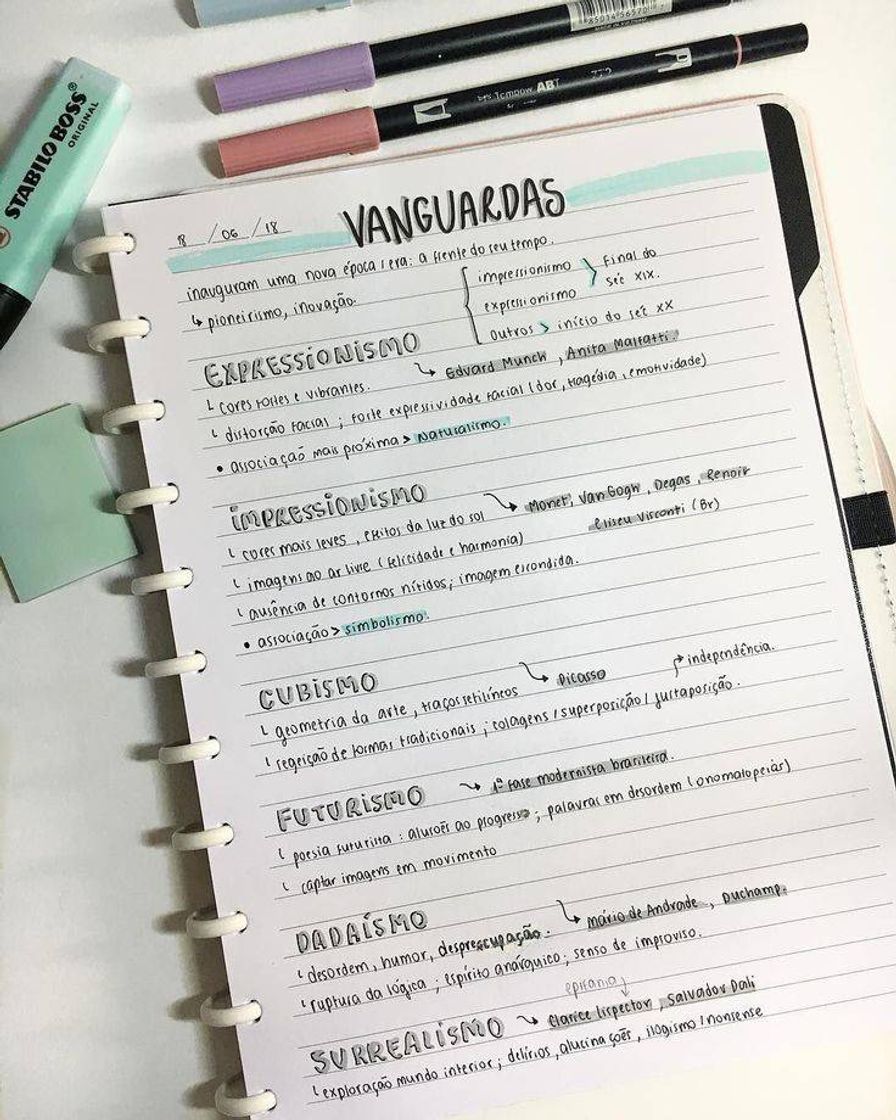 85014 56570
Tombow ABT
STABILO BOSS
ORIGINAL
8 / 06 / 18
VANGUARDAS
inauguram uma nova época / era: a frente do seu tempo.
↳ pioneirismo, inovação.
impressionismo
expressionismo
final do
séc XIX.
outros > início do séc XX
EXPRESSIONISMO
↳ Edvard Munch, Anita Malfatti.
cores fortes e vibrantes.
distorção facial; forte expressividade facial (dor, tragédia, emotividade)
• associação mais próxima > Naturalismo.
IMPRESSIONISMO
→ Monet, Van Gogh, Degas, Renoir
Eliseu Visconti (Br)
cores mais leves, efeitos da luz do sol
imagens ao ar livre (felicidade e harmonia)
ausência de contornos nítidos; imagem escondida.
• associação > simbolismo.
CUBISMO
→ Picasso
independência.
geometria da arte, traços retilíneos
regeição de formas tradicionais; colagens / superposição / justaposição.
FUTURISMO
→ 1ª fase modernista brasileira.
poesia futurista: alusões ao progresso; palavras em desordem (onomatopeias)
captar imagens em movimento
DADAÍSMO
→ mário de Andrade, Duchamp.
desordem, humor, despreocupação.
ruptura da lógica; espírito anárquico; senso de improviso.
epifania
SURREALISMO
→ Clarice lispector, Salvador Dali
exploração mundo interior; delírios, alucinações, ilogismo / nonsense